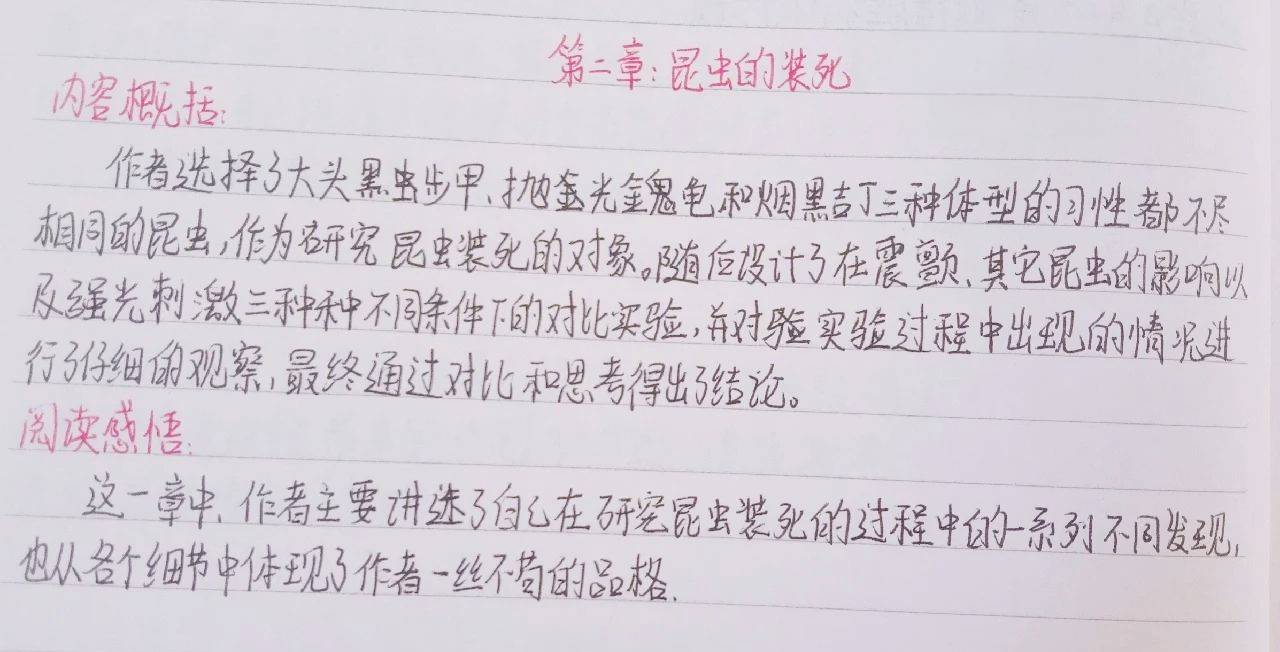 第二章:昆虫的装死
内容概括:
作者选择了大头黑虫步甲、抛金光金龟和烟黑吉丁三种体型的习性都不尽
相同的昆虫,作为研究昆虫装死的对象。随后设计了在震颤、其它昆虫的影响以
及强光刺激三种种不同条件下的对比实验,并对验实验过程中出现的情况进
行了仔细的观察,最终通过对比和思考得出了结论。
阅读感悟:
这一章中,作者主要讲述了自己在研究昆虫装死的过程中的一系列不同发现,
也从各个细节中体现了作者一丝不苟的品格.